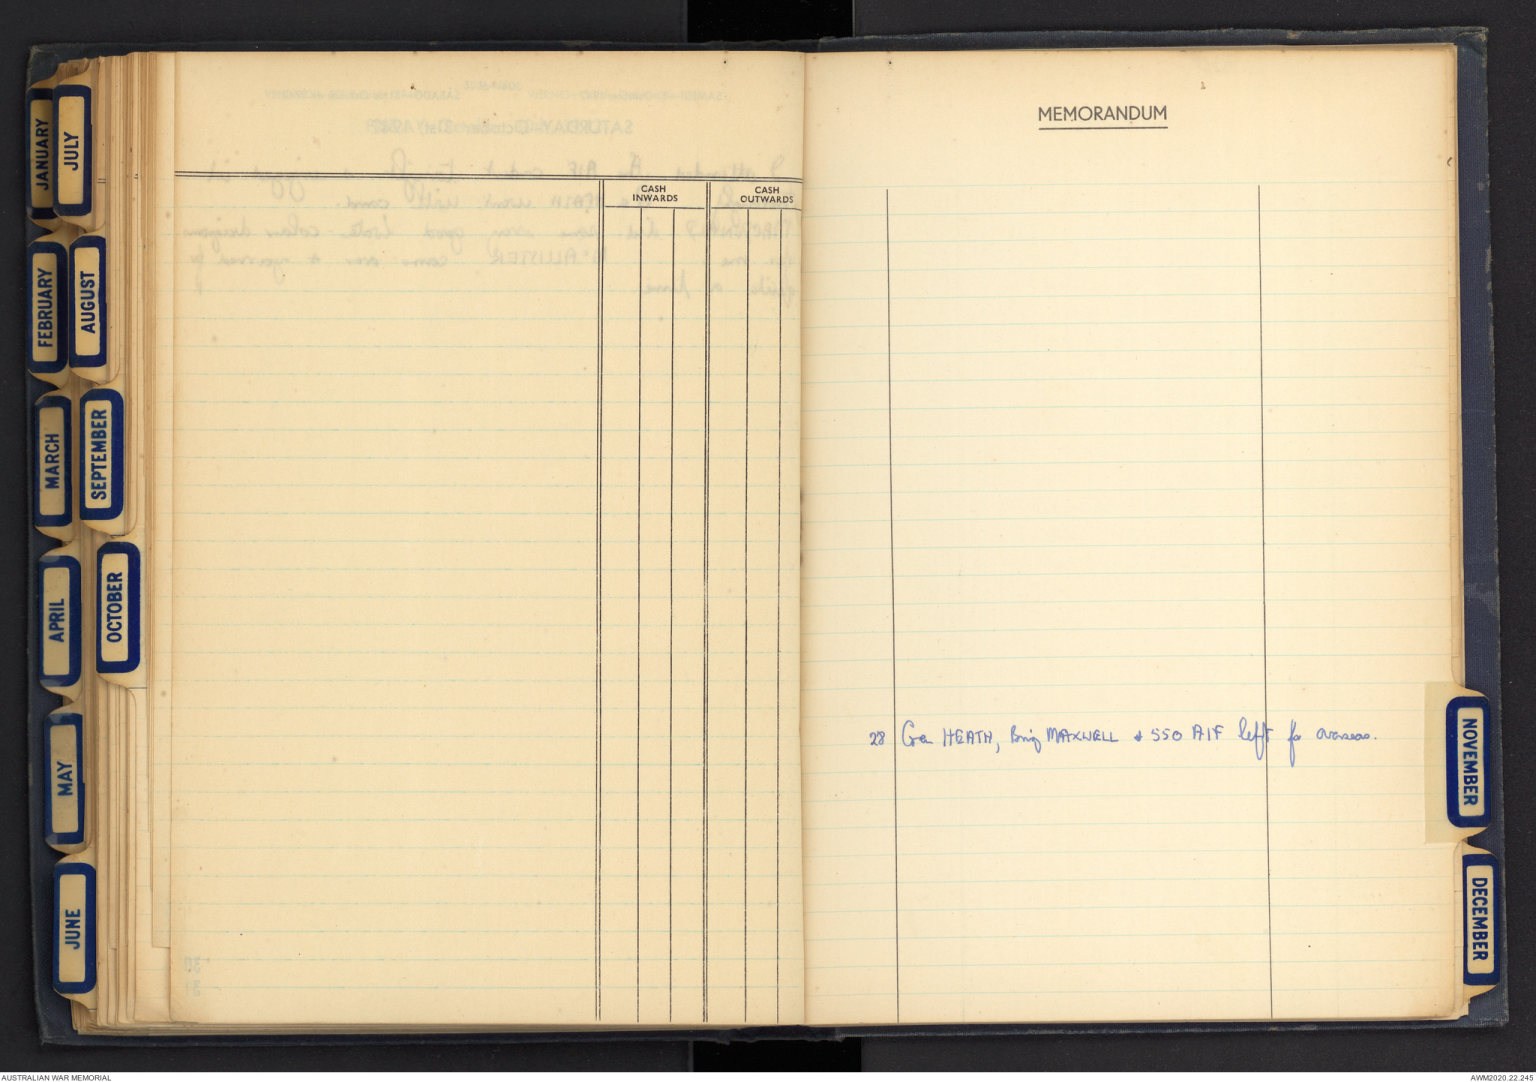 JANUARY
FEBRUARY
MARCH
APRIL
MAY
JUNE
JULY
AUGUST
SEPTEMBER
OCTOBER
CASH INWARDS
CASH OUTWARDS
MEMORANDUM
28 Gen HEATH, Brig MAXWELL & 550 AIF left for overseas.
NOVEMBER
DECEMBER
AUSTRALIAN WAR MEMORIAL
AWM2020.22.245